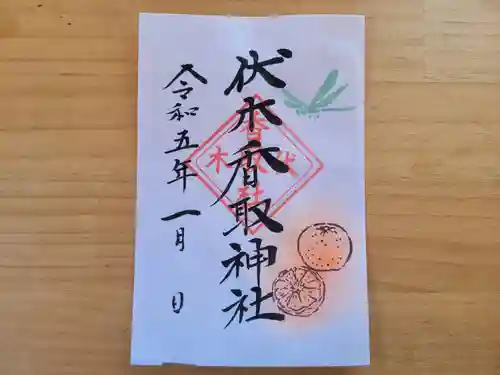 伏木香取神社
令和五年一月 日